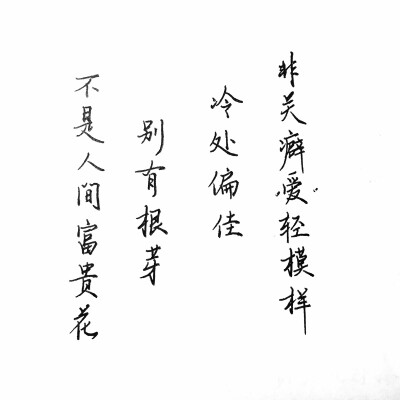 非关癖爱轻模样
冷处偏佳
别有根芽
不是人间富贵花